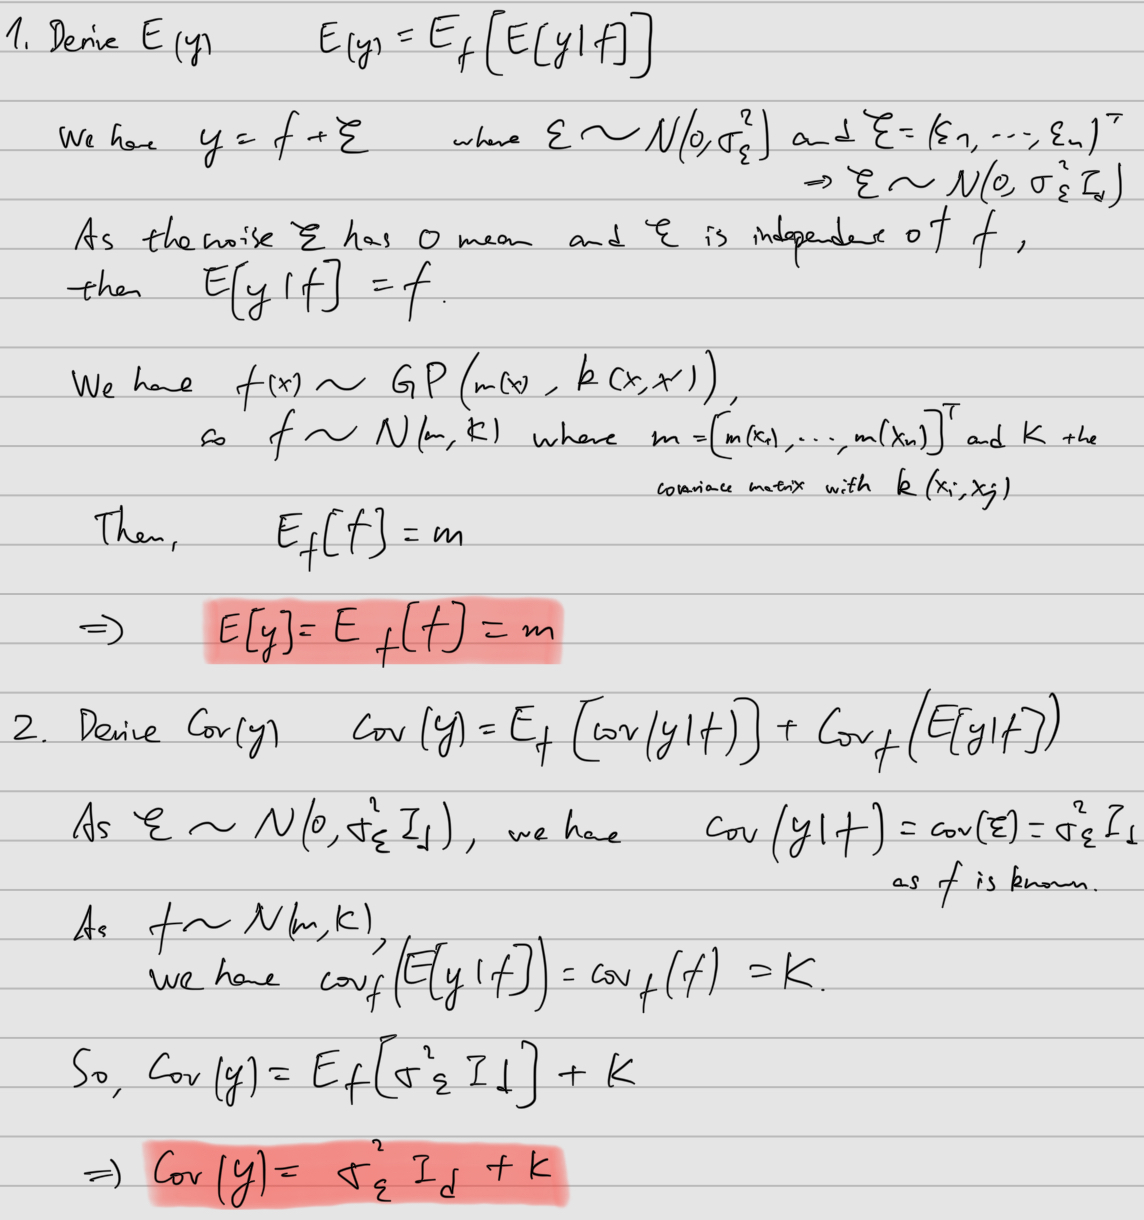 1. Derive E(y) E(y) = E_f[E[y|f]]
We have y = f + ε where ε ~ N(0, σ_ε^2) and ε = (ε_1, ..., ε_n)^T
⇒ ε ~ N(0, σ_ε^2 I_d)
As the noise ε has 0 mean and ε is independent of f,
then E[y|f] = f.
We have f(x) ~ GP(m(x), k(x,x')),
so f ~ N(m, K) where m = [m(x_1), ..., m(x_n)]^T and K the
covariance matrix with k(x_i, x_j)
Then, E_f[f] = m
⇒ E[y] = E_f[f] = m
2. Derive Cov(y) Cov(y) = E_f[cov(y|f)] + Cov_f(E[y|f])
As ε ~ N(0, σ_ε^2 I_d), we have Cov(y|f) = cov(ε) = σ_ε^2 I_d
as f is known.
As f ~ N(m, K),
we have cov_f(E[y|f]) = cov_f(f) = K.
So, Cov(y) = E_f[σ_ε^2 I_d] + K
⇒ Cov(y) = σ_ε^2 I_d + K